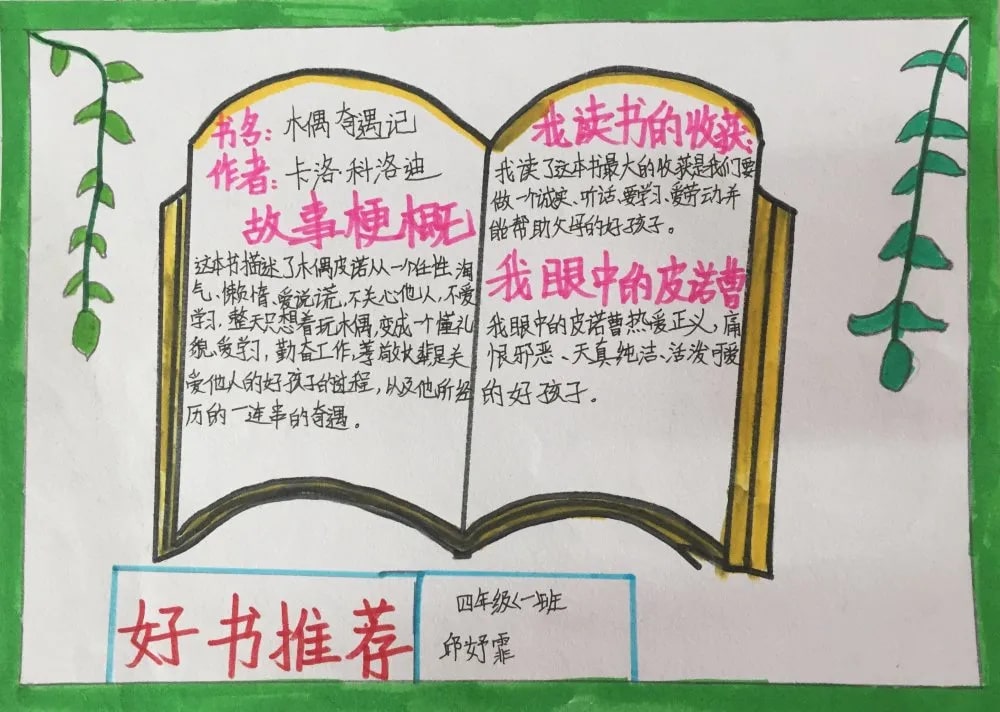 书名：木偶奇遇记
作者：卡洛·科洛迪
故事梗概
这本书描述了木偶皮诺从一个任性、淘
气、懒惰、爱说谎，不关心他人，不爱
学习，整天只想着玩木偶，变成一个懂礼
貌、爱学习，勤奋工作，孝敬长辈是关
爱他人的好孩子的过程，以及他所经
历的一连串的奇遇。
我读书的收获：
我读了这本书最大的收获是我们要
做一个诚实、听话、要学习、爱劳动并
能帮助父母的好孩子。
我眼中的皮诺曹
我眼中的皮诺曹热爱正义，痛
恨邪恶、天真纯洁、活泼可爱
的好孩子。
好书推荐
四年级〈一〉班
邱妤霏